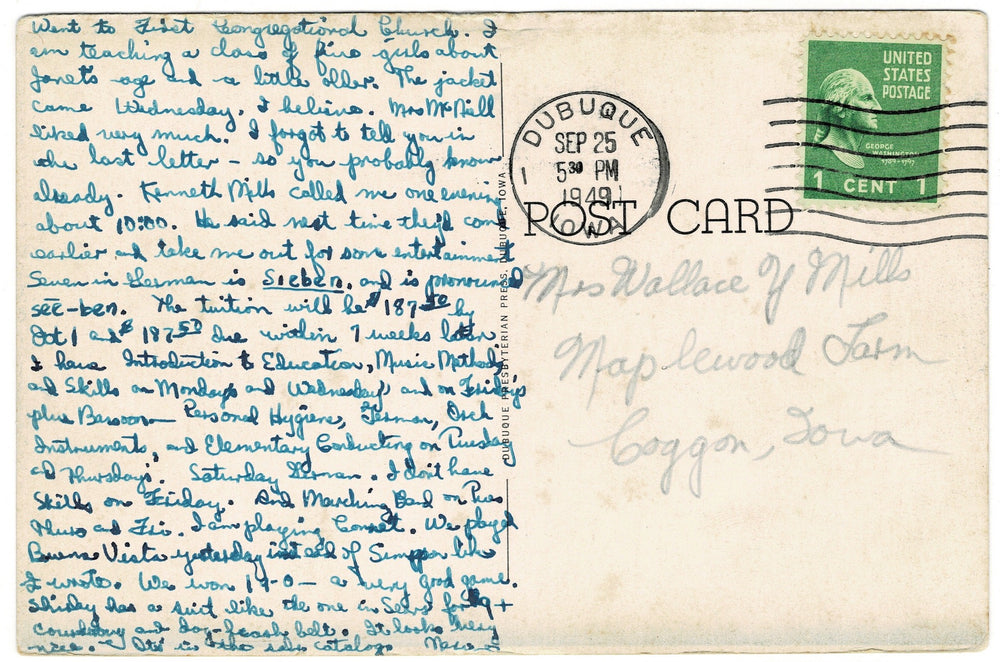 Went to First Congregational Church. I
am teaching a class of five girls about
Janet's age and a little older. The jacket
came Wednesday, I believe. Mrs McNeill
liked very much. I forgot to tell you in
the last letter – so you probably know
already. Kenneth Mills called me one evening
about 10:00. He said next time they'd come
earlier and take me out for some entertainment
Seven in German is Sieben, and is pronounced
sēē-ben. The tuition will be $187.50 by
Oct 1 and $187.50 due within 7 weeks later
I have Introduction to Education, Music Methods,
and Skills on Mondays and Wednesdays and on Fridays
plus Bassoon — Personal Hygiene, German, Orch
Instruments, and Elementary Conducting on Tuesday
and Thursdays. Saturday German. I don't have
Skills on Friday. And Marching Band on Tues
Thurs and Fri. I am playing Cornet. We played
Buena Vista yesterday instead of Simpson like
I wrote. We won 19-0 — a very good game.
Shirley has a suit like the one in Sears for $9+
corduroy and belt. It looks very
nice. – It's in the sales catalogs
DUBUQUE PRESBYTERIAN PRESS, DUBUQUE, IOWA
DUBUQUE
SEP 25
5 30 PM
1949
IOWA
1
UNITED
STATES
POSTAGE
GEORGE
WASHINGTON
1 CENT 1
POST CARD
Mrs Wallace Y Mills
Maplewood Farm
Coggon, Iowa